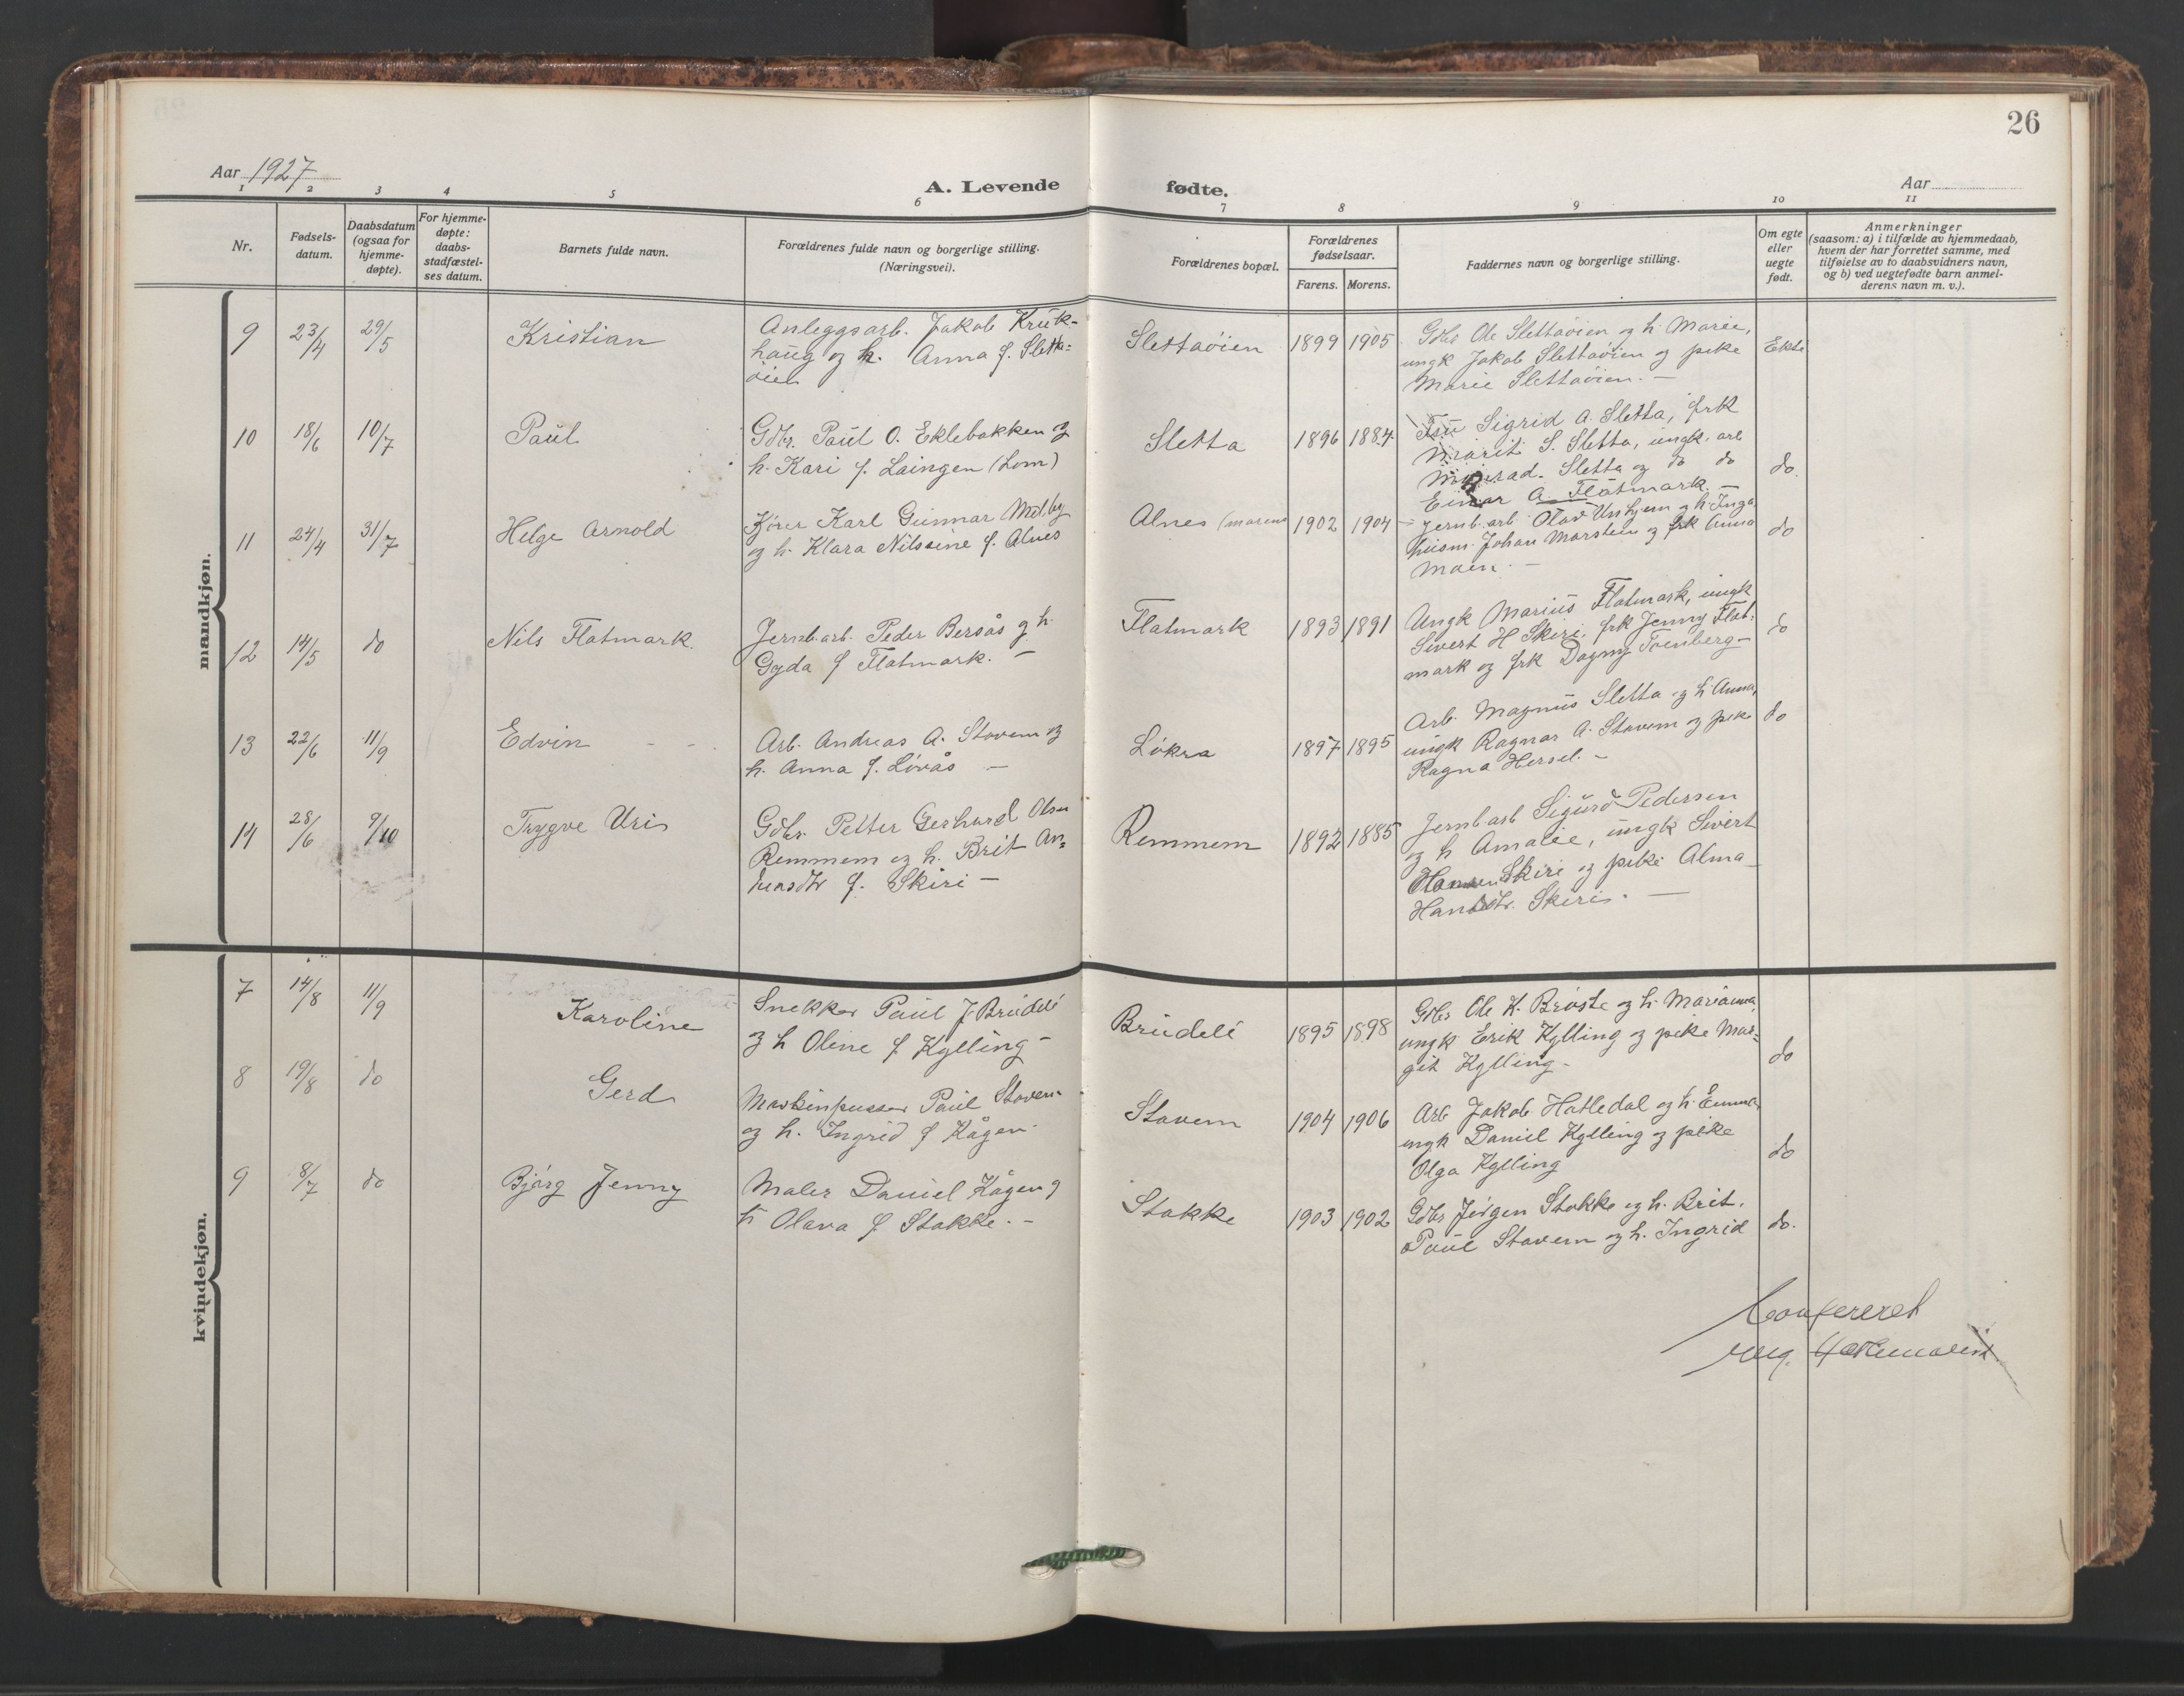 26
Aar 1927
A. Levende fødte.
Aar
1 2 3 4 5 6 7 8 9 10 11
Nr.
Fødsels-
datum.
Daabsdatum
(ogsaa for
hjemme-
døpte).
For hjemme-
døpte:
daabs-
stadfæstel-
ses datum.
Barnets fulde navn.
Forældrenes fulde navn og borgerlige stilling.
(Næringsvei).
Forældrenes bopæl.
Forældrenes
fødselsaar.
Farens. Morens.
Faddernes navn og borgerlige stilling.
Om egte
eller
uegte
født.
Anmerkninger
(saasom: a) i tilfælde av hjemmedaab,
hvem der har forrettet samme, med
tilføielse av to daabsvidners navn,
og b) ved uegtefødte barn anmel-
derens navn m. v.).
mandkjøn.
9 23/4 29/5 Kristian
Anleggsarb. Jakob Kruk-
haug og h. Anna f. Sletta-
øien
Slettaøien 1899 1905
Gdbr Ole Slettaøien og h. Marie,
ungk Jakob Slettaøien og pike
Marie Slettaøien. —
Ekte
10 18/6 10/7 Paul
Gdbr. Paul O. Eklebakken og
h. Kari f. Laingen (Lom)
Sletta 1896 1884.
Fru Sigrid A. Sletta, frk
Marit S. Sletta, ungk. arb
Sletta og do do
Einar A. Flatmark. —
do.
11 24/4 31/7 Helge Arnold
Kjører Karl Gunnar Melby
og h. Klara Nilssine f. Alnes
Alnes (morens 1902 1904
Jernb.arb Olav Unhjem og h. Inga
husm. Johan Marstein og frk Anna
Moen. —
do
12 14/5 do Nils Flatmark.
Jernb.arb. Peder Bersås og h.
Gyda f Flatmark. —
Flatmark 1893 1891
Ungk Marius Flatmark, ungk
Sivert H Skiri, frk Jenny Flat-
mark og frk Dagny Toenberg —
do
13 22/6 11/9 Edvin
Arb. Andreas A. Stavem og
h. Anna f. Løvås —
Løkra 1897 1895
Arb. Magnus Sletta og h Anna,
ungk Ragnar A. Stavem og pike
Ragna Hersel. —
do
14 28/6 9/10 Trygve Uri
Gdbr. Petter Gerhard Olsen
Remmem og h. Brit An-
f. Skiri —
Remmem 1892 1885
Jernb arb Sigurd Pedersen
og h Amalie, ungk Sivert
Hansen Skiri og pike Alma
Hansdtr. Skiri. —
kvindekjøn.
7 14/8 11/9 Karoline
Snekker Paul J. Brüdeli
og h Oline f Kylling —
Brüdeli 1895 1898
Gdbr Ole K. Brøste og h. Marianna,
ungk Erik Kylling og pike Mar-
git Kylling —
do
8 19/8 do Gerd
Maskinpusser Paul Stavem
og h. Ingrid f Kågen
Stavem 1904 1906
Arb Jakob Hatledal og h. Emma,
ungk Daniel Kylling og pike
Olga Kylling
do
9 8/7 do Bjørg Jenny
Maler Daniel Kågen og
h Olava f Stokke. —
Stokke 1903 1902
Gdbr Jørgen Stokke og h. Brit.
Paul Stavem og h. Ingrid
do.
Confereret